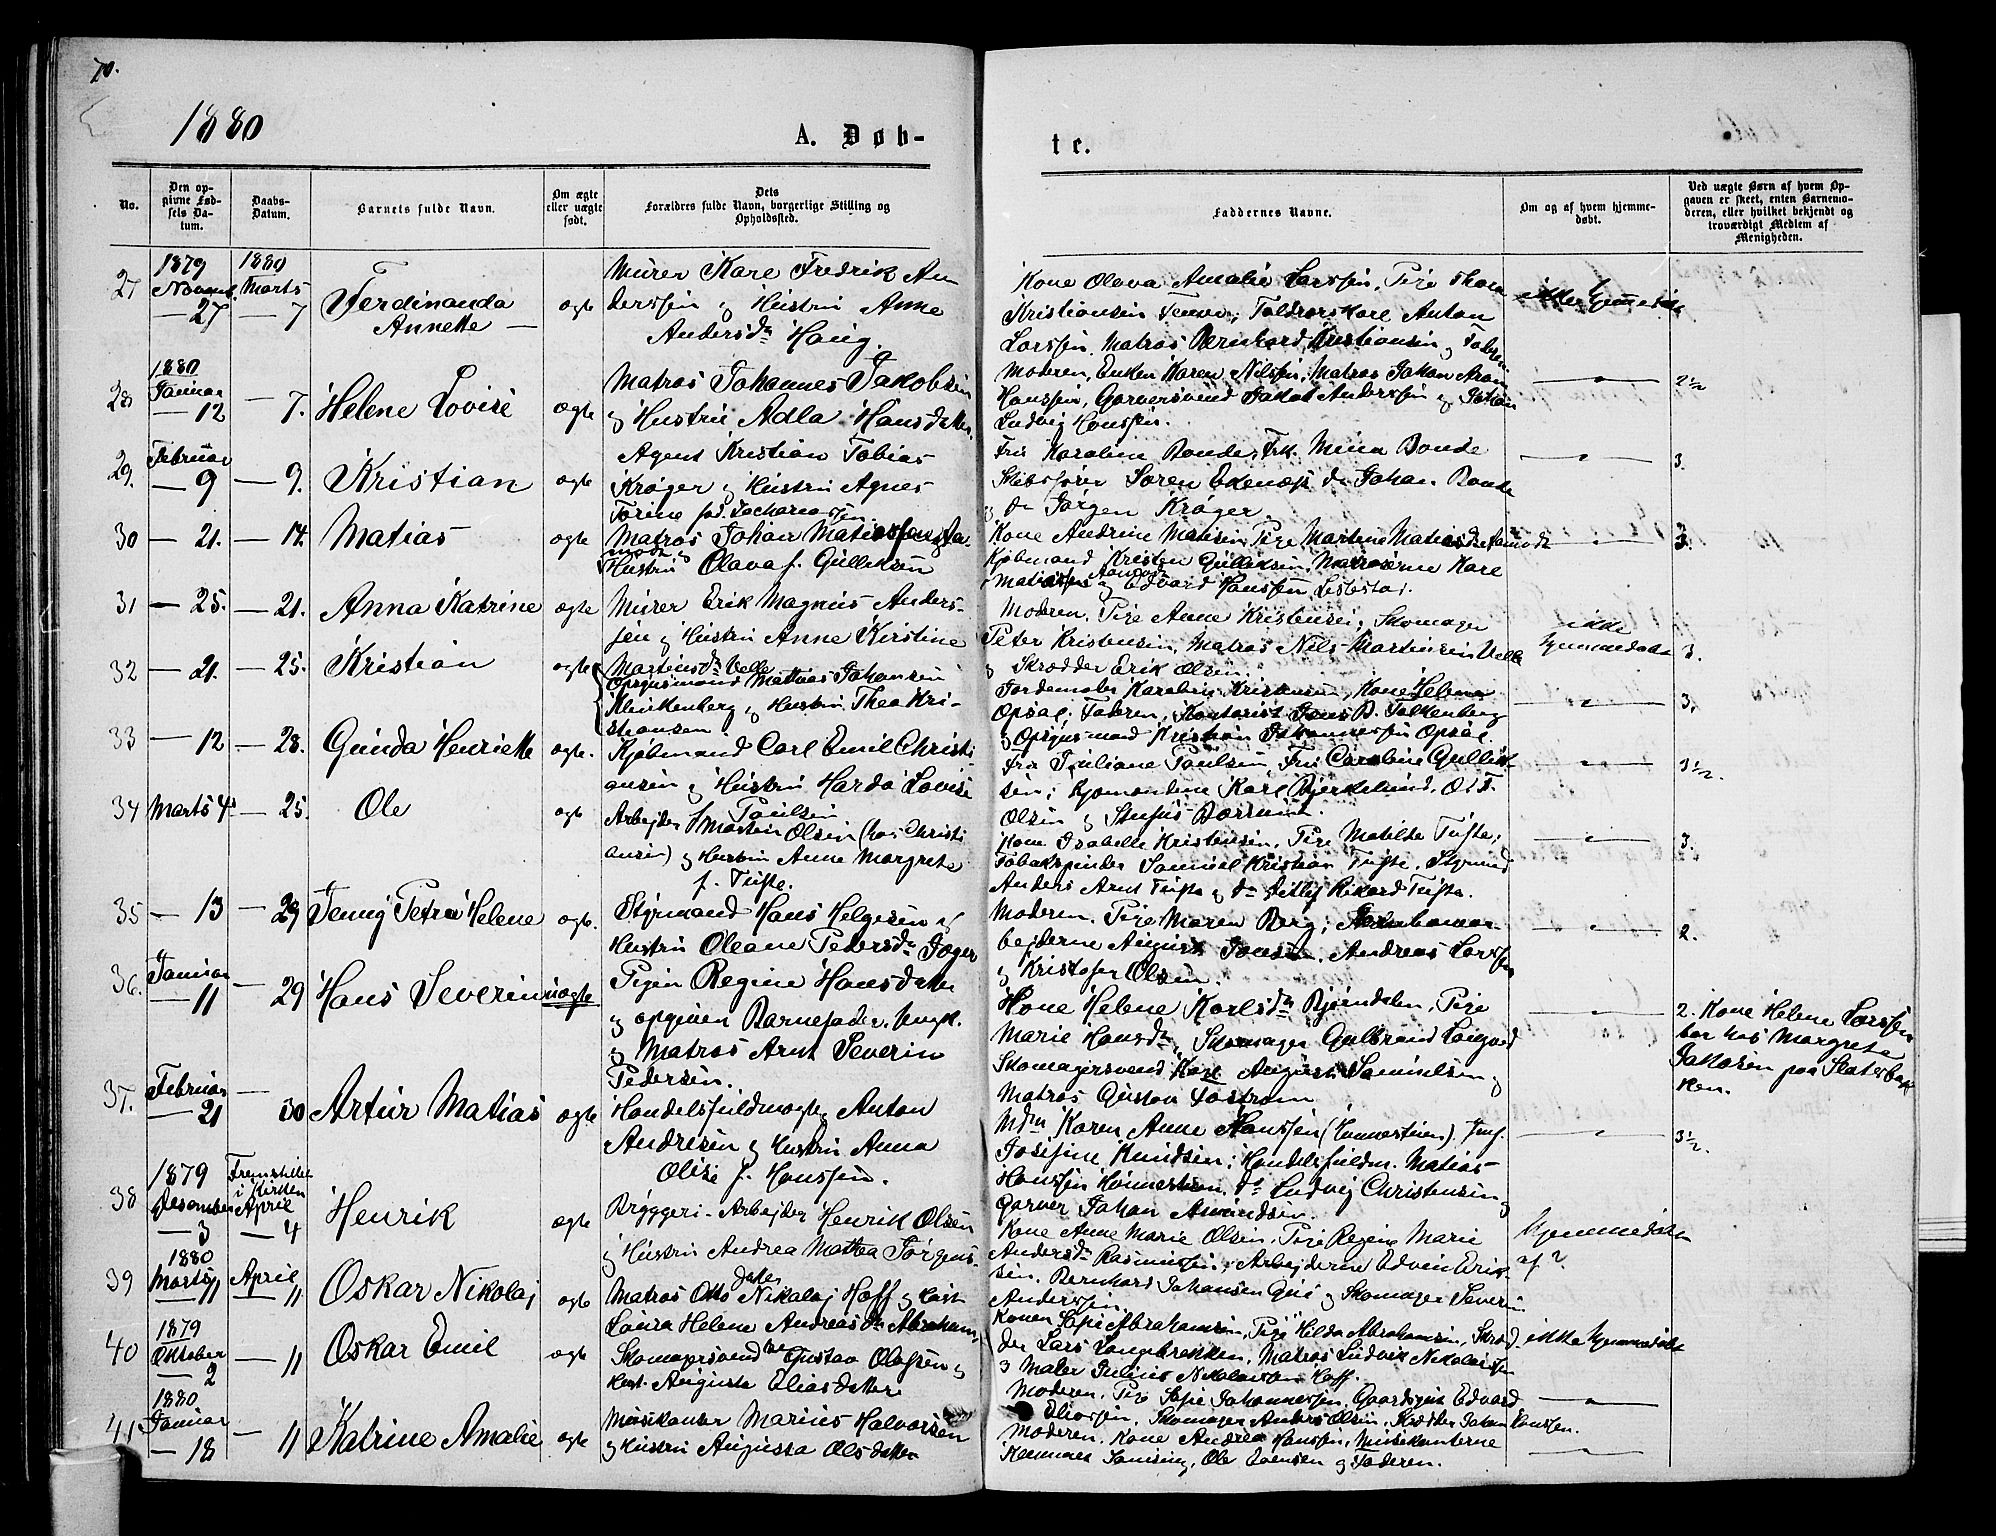 70.
1880
A. Døb-
te.
No.
Den op-
givne Fød-
sels Da-
tum.
Daabs-
Datum.
Barnets fulde Navn.
Om ægte
eller uægte
født.
Dets
Forældres fulde Navn, borgerlige Stilling og
Opholdssted.
Faddernes Navne.
Om og af hvem hjemme-
døbt.
Ved uægte Børn af hvem Op-
gaven er skeet, enten Barnemo-
deren, eller hvilket bekjendt og
troværdigt Medlem af
Menigheden.
27
1879
Novemb.
— 27
1880
Marts
— 7
Ferdinanda
Annette —
ægte
Murer Karl Fredrik An
derssen og Hustru Anne
Andersdr Haug.
Kone Olava Amalie Larssen, Pige Thora
Kristiansen
Larssen, Matros Bernhard Kristiansen og Faderen
ikke hjemmedøbt
28
1880
Januar
— 12
— 7.
Helene Lovise
ægte
Matros Johannes Jakobsen
og Hustru Adla Hansdatter.
Moderen, Enken Karen Nilssen, Matros Johan Aron
Hanssen, Garversvend Jakob Anderssen og Johan
Ludvig Hanssen.
— " —
2 1/2
29.
Februar
— 9
— 9.
Kristian
ægte
Agent Kristian Tobias
Krøger og Hustru Agnes
Torine fød. Zachariassen
Fru Karoline Bonde, Frk. Mina Bonde
Skibsfører Søren Edenæs, do Johan Bonde
og do Jørgen Krøger
— " —
3.
30
— 21.
— 14.
Matias
ægte
Matros Johan Matiassen Aa-
modt og
Hustru Olava f. Gulliksen
Kone Andrine Pige Martine Matiasdr Aamodt
Kjøbmand Kristen Gulliksen, Matroserne Karl
Matiassen Aamodt og Edvard Hanssen
— " —
3.
31
— 25.
— 21.
Anna Katrine
ægte
Murer Erik Magnus Anders-
sen og Hustru Anne Kirstine
Martinsdr Velle
Moderen, Pige Anne Kristensen, Skomager
Peter Kristensen, Matros Nils Martinsen Velle
og Skrædder Erik Olsen.
ikke
hjemmedøbt
3.
32
— 21.
— 25.
Kristian
ægte
Opsynsmand Mathias Johansen
Klinkenberg og Hustru Thea Kri-
stiansen
Jordemoder Karoline Kristensen, Kone Helene
Opsal, Faderen, Kontorist Jens B. Falkenberg
og Opsynsmand Kristian Johannessen Opsal.
— " —
3.
33
— 12
— 28.
Gunda Henriette
ægte.
Kjøbmand Carl Emil Christi
ansen og Hustru Harda Lovise
Paulsen
Fru Juliane Paulsen, Fru Caroline Gullik-
sen, Kjøbmændene Karl Bjerkelund, O. T.
Olsen og
— " —
3 1/2.
34
Marts 4
— 25.
Ole
ægte
Arbejder Martin Olsen (hos Christi
ansen) og Hustru Anne Margrete
f. Tufte.
Kone Isabelle Kristensen, Pige Matilde Tufte,
Tobakspinder Samuel Kristian Tufte, Styrmand
Anders Arnt Tufte og do Ditlef Rikard Tufte.
— " —
3.
35
— 13
— 29
Jenny Petra Helene
ægte.
Styrmand Hans Helgesen og
Hustru Oleane Pedersdr Jæger
Moderen, Pige Maren Berg,
bejderne August Jonsen, Andreas Larssen
og Kristofer Olsen.
— " —
2.
36.
Januar
— 11
— 29
Hans Severin
uægte
Pigen Regine Hansdatter
og opgiven Barnefader, Ungk.
og Matros Arnt Severin
Pedersen.
Kone Helene Karlsdr Bjørndalen, Pige
Marie Hansdr, Skomager Gulbrand
Skomagersvend Karl August Samuelsen og
Matros Gustav Fostrøm
— " —
2. Kone Helene Larssen
bor hos Margrete
Jakobsen paa Slaterbak
ken.
37.
Februar
— 21
—
30
Artur Matias
ægte
Handelsfuldmægtig Anton
Andresen og Hustru Anna
Olise f. Hanssen.
Mdm Karen Anne Hanssen (Hunnestuen), Jmf.
Josefine Knudsen, Handelsfuldm. Matias
Hanssen do Ludvig Christensen og
Garver Johan Amundsen.
— " —
3 1/2.
38
1879
Desember
— 3
Fremstillet
i Kirken
April
— 4
Henrik
ægte
Bryggeri-Arbejder Henrik Olsen
og Hustru Andrea Mathea Jørgens-
datter
Kone Anne Marie Olsen, Pige Regine Marie
Andersdr Rasmussen, Arbejderne Edvin Erik-
sen, Bernhard Johansen og Skomager Severin
Anderssen
hjemmedøbt
af ?
39
1880
Marts
— 11
April
— 11
Oskar Nikolaj
ægte
Matros Otto Nikolaj Hoff og Hust.
Laura Helene Andreasdr Abraham,
Konen Sofie Abrahamsen, Pige Hilda Abrahamsen, Skræd-
der Lars Langbrekken, Matros Ludvik Nikolaissen
og Maler Julius Nikolaissen Hoff.
ikke hjemmedøbt
40
1879
Oktober
— 2
— 11
Oskar Emil
ægte
Skomagersvend Gustav Olafsen og
Hust. Augusta Eliasdatter
Moderen, Pige Sofie Johannessen, Gaardsgut Edvard
Eliassen, Skomager Anders Olsen, Skrædder Johan Hanssen.
— " —
41
1880
Januar
— 18
— 11
Katrine Amalie
ægte
Musikanter Marius Halvorsen
og Hustru Augusta Olsdatter
Moderen, Kone Andrea Hanssen, Musikanterne
Ole Evensen og Faderen.
— " —